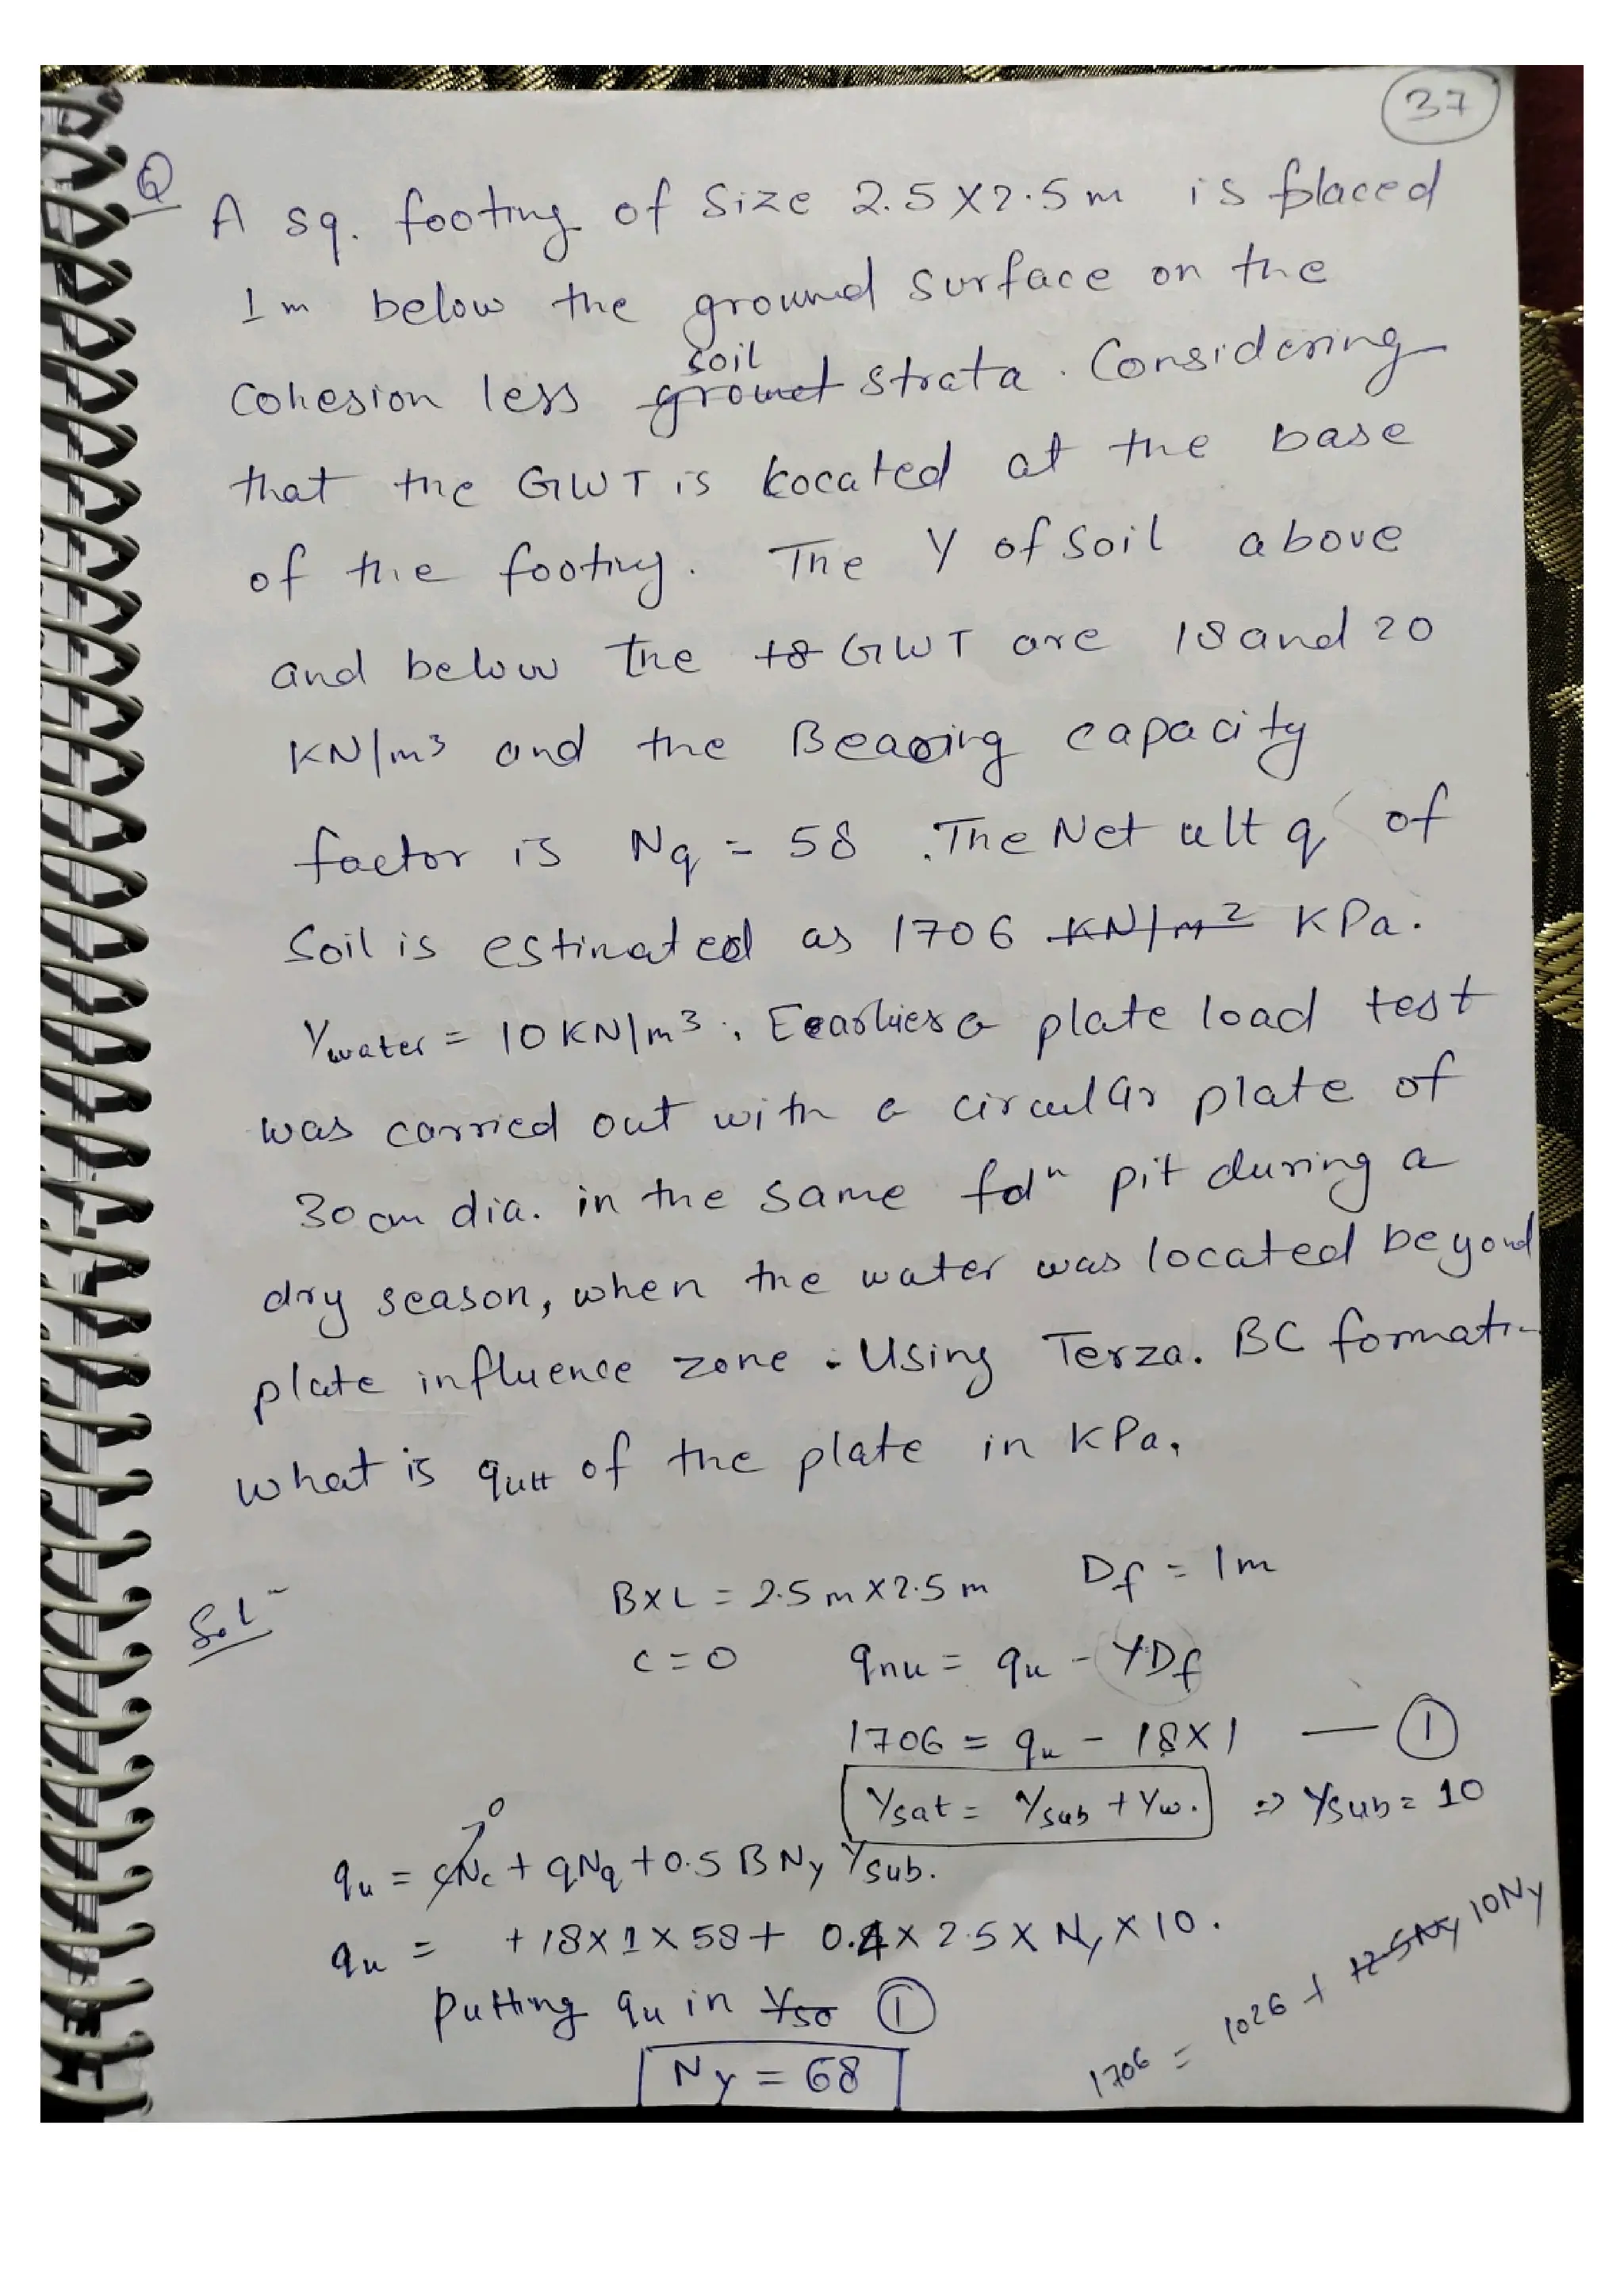 37
Q A sq. footing of size 2.5X2.5m is placed
1m below the ground surface on the
soil
cohesion less ground strata. Considering
that the GWT is located at the base
of the footing. The γ of soil above
and below the 18 GWT are 18 and 20
KN/m³ and the Bearing capacity
factor is Nq = 58. The Net ult q of
Soil is estimated as 1706 KN/m² KPa.
γwater = 10 KN/m³. Eearlier a plate load test
was carried out with a circular plate of
30cm dia. in the same fdⁿ pit during a
dry season, when the water was located beyond
plate influence zone. Using Terza. BC formati
what is qult of the plate in KPa.
Sol- BXL = 2.5m X 2.5m Df = 1m
C = 0 qnu = qu - γDf
1706 = qu - 18X1 — ①
γsat = γsub + γw. => γsub = 10
0
qu = cNc + qNq + 0.5 B Nγ γsub.
qu = + 18X1X58 + 0.4X2.5X Nγ X10.
Putting qu in ①
Nγ = 68
1706 = 1026 + 12.5Nγ 10Nγ